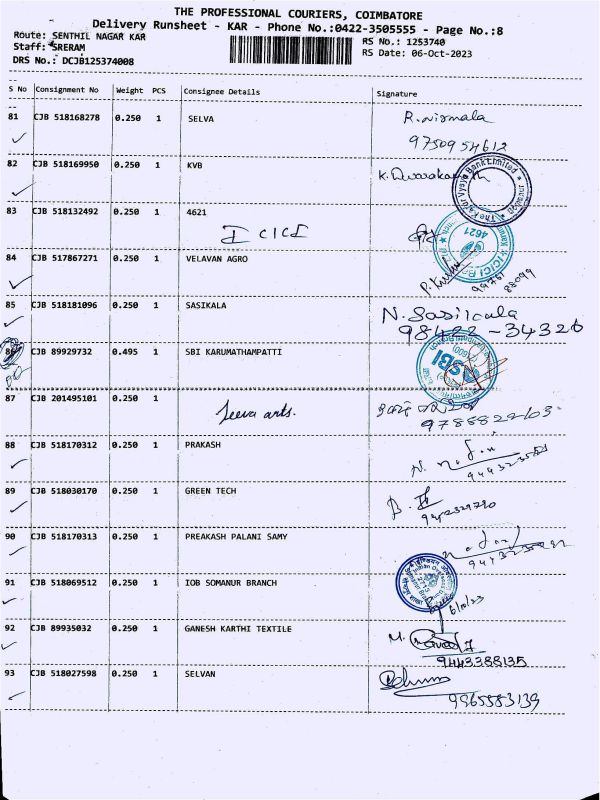 THE PROFESSIONAL COURIERS, COIMBATORE
Delivery Runsheet - KAR - Phone No.:0422-3505555 - Page No.:8
Route: SENTHIL NAGAR KAR
RS No.: 1253740
Staff: SRERAM
RS Date: 06-Oct-2023
DRS No.: DCJB125374008
S No Consignment No Weight PCS Consignee Details Signature
81 CJB 518168278 0.250 1 SELVA R. nirmala
9750954612
82 CJB 518169950 0.250 1 KVB
83 CJB 518132492 0.250 1 4621
ICICI
4621
84 CJB 517867271 0.250 1 VELAVAN AGRO
85 CJB 518181096 0.250 1 SASIKALA N. Sasikala
98422-34326
86 CJB 89929732 0.495 1 SBI KARUMATHAMPATTI
SBI
87 CJB 201495101 0.250 1
Jeeva arts.
88 CJB 518170312 0.250 1 PRAKASH
89 CJB 518030170 0.250 1 GREEN TECH
90 CJB 518170313 0.250 1 PREAKASH PALANI SAMY
91 CJB 518069512 0.250 1 IOB SOMANUR BRANCH
6/10/23
92 CJB 89935032 0.250 1 GANESH KARTHI TEXTILE
9443388135
93 CJB 518027598 0.250 1 SELVAN
9965583139